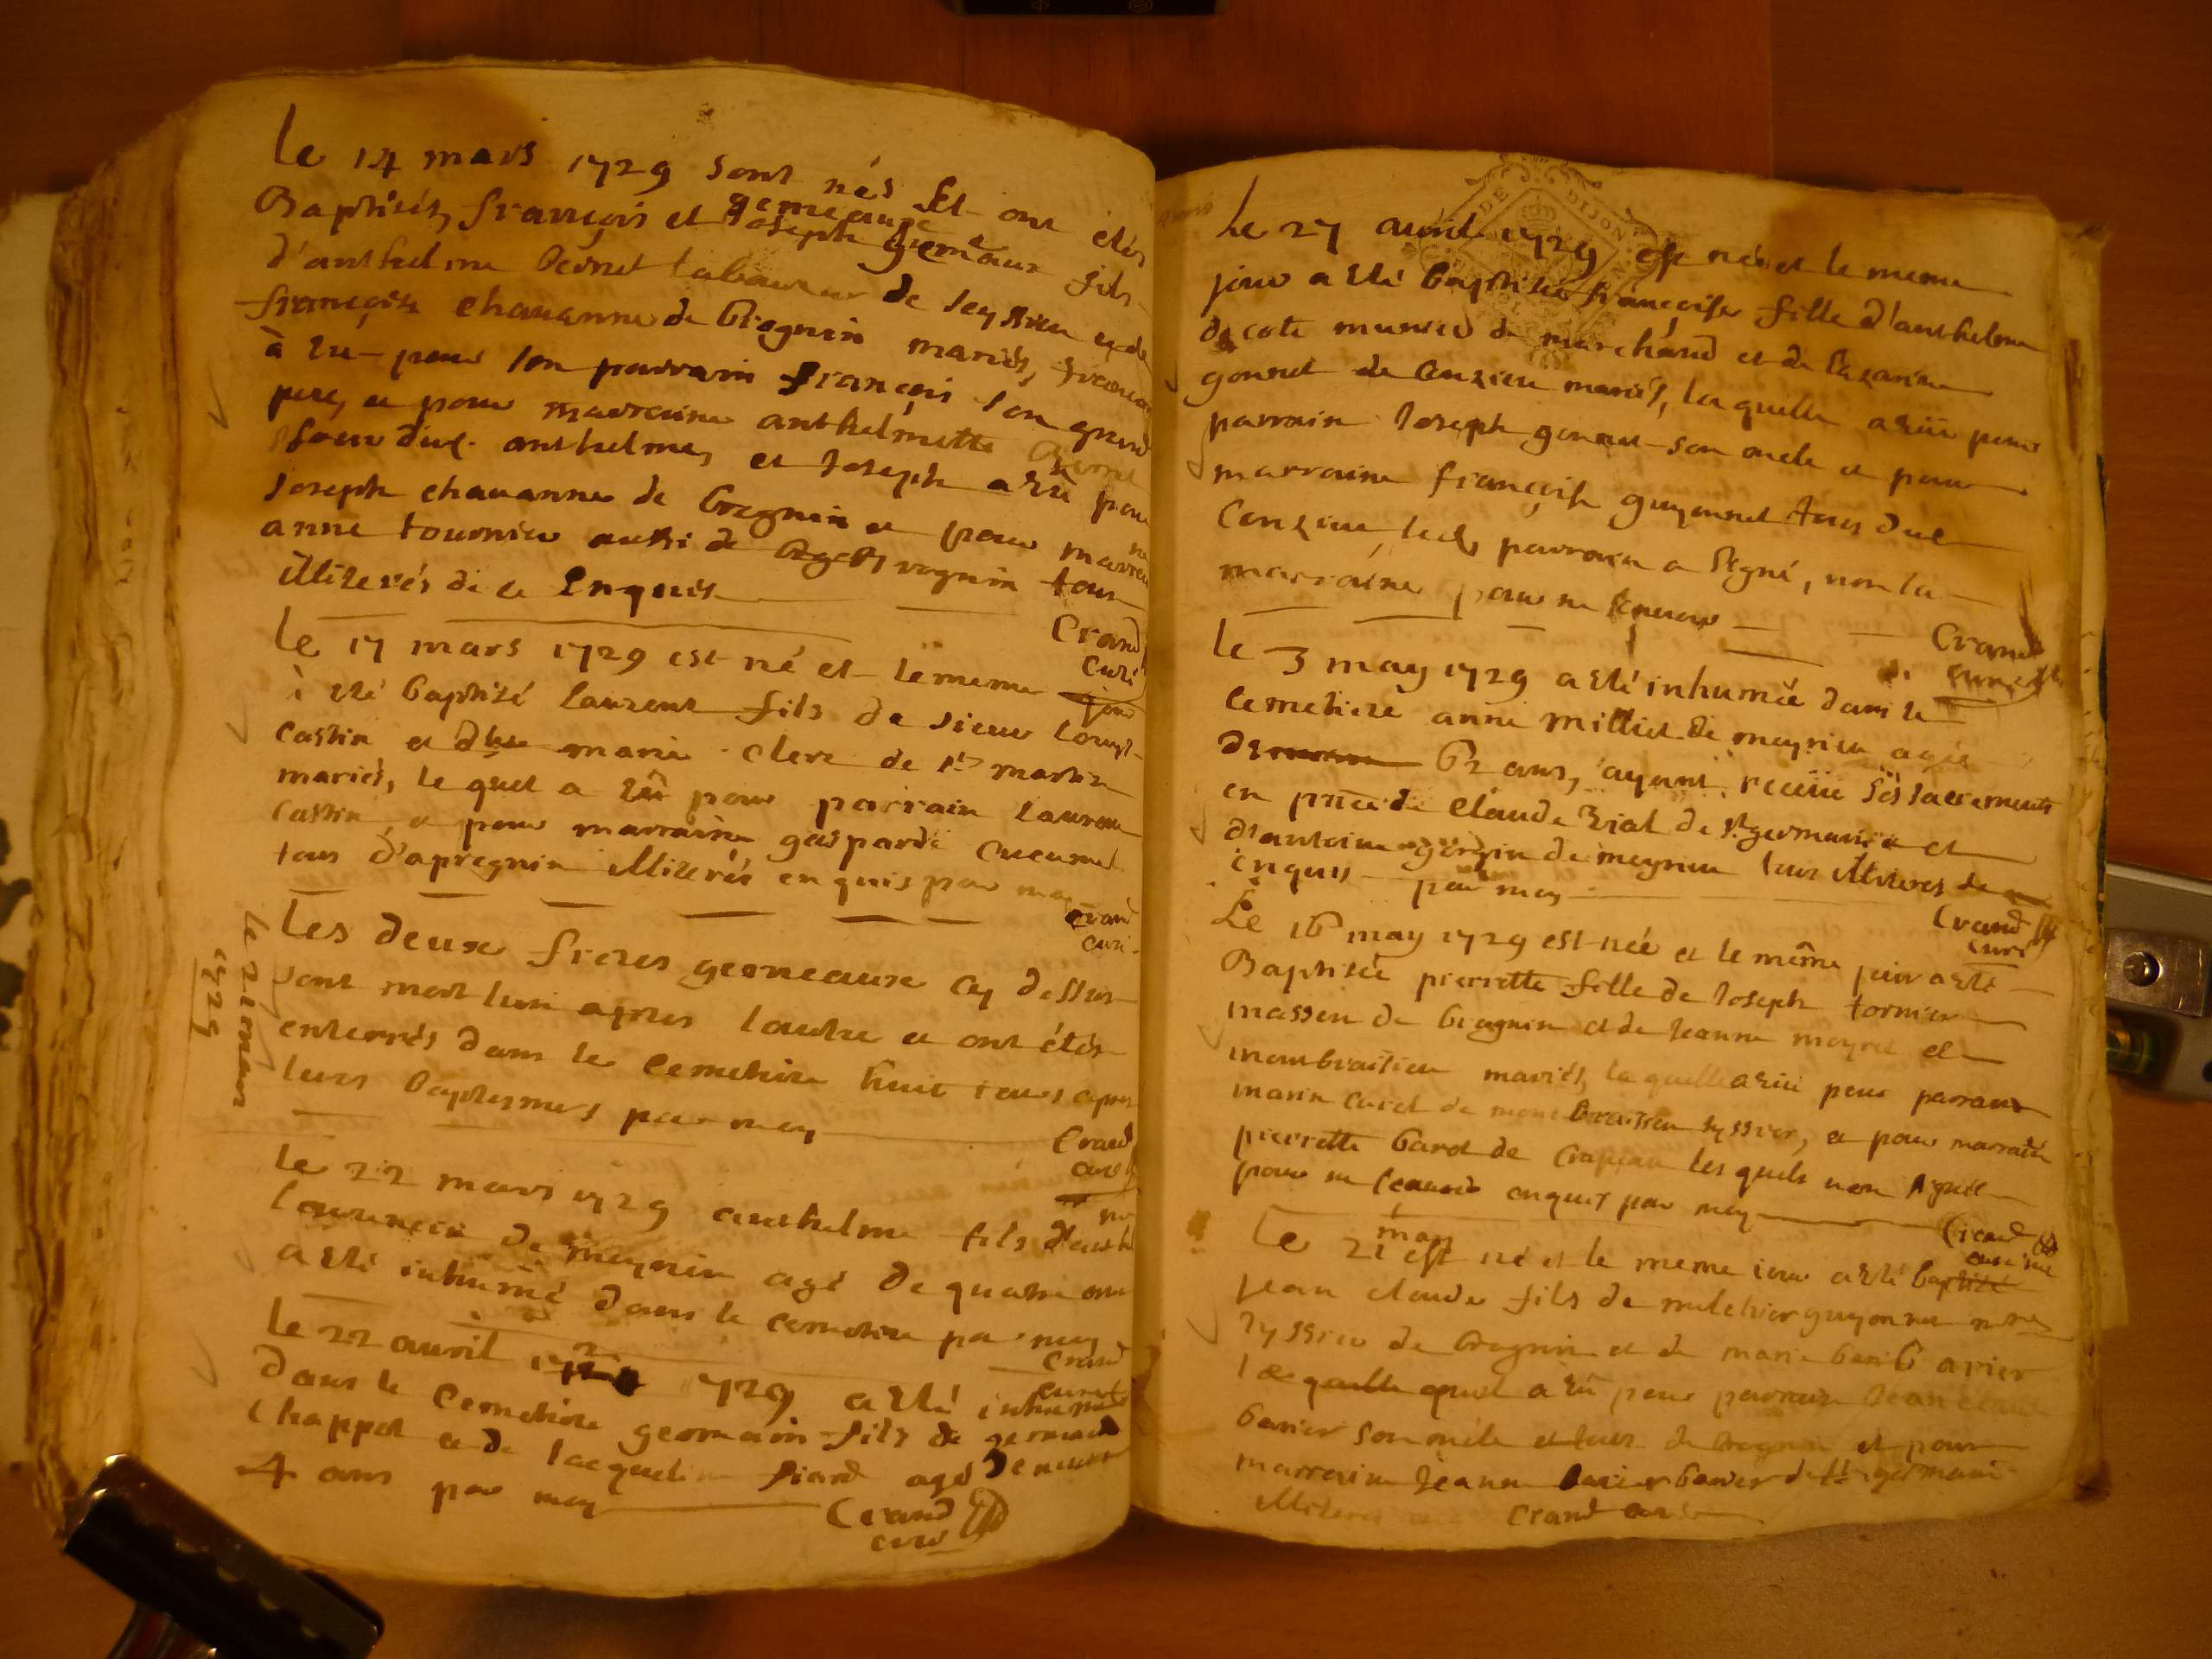 Le 14 mars 1729 sont nés Et ont etés
Baptisés, françois et Joseph gemeaux gemeaux fils
d'anthelme laboureur de et de
françoise chavanne de Brognin mariés, francois
à eu pour son parrain François son grand
pere, et pour marraine anthelmette
soeur dud. anthelme, et Joseph a eü pour
Joseph chavanne de Bregnin et pour marrei
ne
anne tournier aussi de vognin tous
illiterés de ce Enquis
Crand
Curé
Le 17 mars 1729 est né et le meme jour
à eté baptisé laurent fils de sieur Louys
Castin et dlle marie clerc de st martin
mariés, le quel a eü pour parrain Laurent
Castin, et pour marraine gasparde Cucumel
tous d'apregnin illiterés enquis par moy
Crand
curé
Les deux freres gemeaux cy dessus
sont mort lun apres l'autre et ont étés
enterrés dans le cemetiere huit jours apres
leurs baptesmes par moy
le 21 mars
1729
Crand
curé
Le 22 mars 1729 anthelme fils d'anthel
me
de meyrieu agé de quatre ans
a eté inhumé dans le cemetiere par moy
Crand
curé
Le 22 avril 1729 a eté inhumé
dans le Cemetiere germain fils de germain
Chappot et de Jacqueline fiard agé de
4 ans par moy
Crand
curé
DE DIJON
Le 27 avril 1729 est née et le meme
jour a eté baptisée françoise fille d'anthelme
de cote munier de marchand et de
gonnet de Conzieu mariés, la quelle a eüe pour
parrain Joseph gonnet son oncle et pour
marraine françoise guyonnet tous dud
Conzieu, led. parrain a signé, non la
marraine pour ne scavoir
Crand
curé
le 3 may 1729 a eté inhumée dans le
Cemetiere anne milliet de meyrieu agée
de 62 ans, ayant receüe ses sacrements
en pnce de Claude Rial de st germain et
d'antoine gorgin de meyrieu tous illiteres de ce
enquis par moy
Crand
curé
Le 16 may 1729 est née et le même jour a eté
Baptisée pierrette fille de Joseph tornier
masson de bragnin et de Jeanne meyret de
montbraisieu mariés, la quelle a eüe pour parrain
marin curet de montbraisieu tyssier, et pour marraine
pierrette baret de Crapeau les quels non signé
pour ne scavoir enquis par moy
Crand
curé
Le 21 may est né et le meme iour a eté baptisé
jean claude fils de melchior guyonnet
tyssieu de bregnin et de marie barb barier
le quel a eü pour parrain Jean claude
barier son oncle et tous de bregnin et pour
marraine Jeanne barier de st germain
illiteres Crand curé